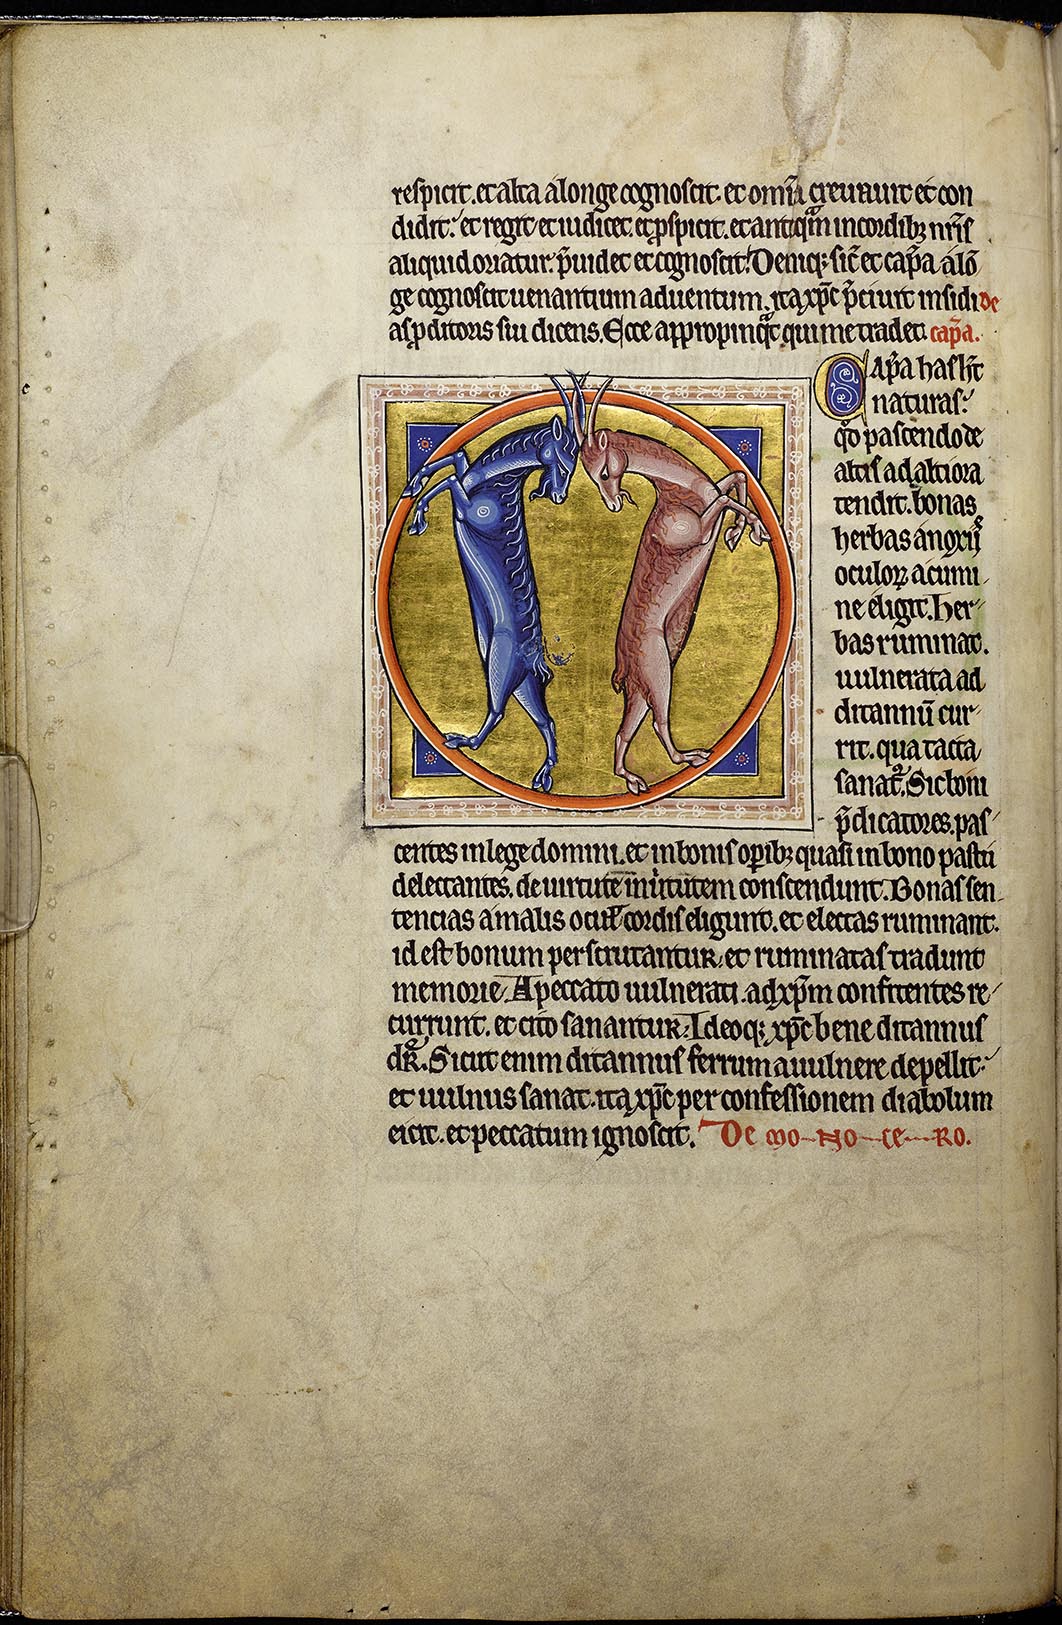 respicit. et alta a longe cognoscit. et om̄ia creauit et con
didit. et regit et iudicet. et ꝓspicit. et anteqͣm in cordibꝫ nr̄is
aliquid oriatur. p̄uidet et cognoscit. Deniqꝫ sic̄ et cap̄a a lō
ge cognoscit uenantium aduentum. ita xp̄c p̄ciuit insidi de
as ꝓditoris sui dicens. Ecce appropinqͣt qui me tradet. cap̄a.
Cap̄a has hīt
naturas.
qd̓ pascendo de
altis ad altiora
tendit. bonas
herbas a noxiis
oculoꝝ acumi
ne eligit. Her
bas ruminat.
uulnerata ad
ditannū cur
rit. qua tacta
sanat᷑. Sic boni
p̄dicatores. pas
centes in lege domini. et in bonis opibꝫ quasi in bono pastu
delectantes. de uirtute in uirtutem conscendunt. Bonas sen
tencias a malis oculis cordis eligunt. et electas ruminant.
id est bonum perscrutantur. et ruminatas tradunt
memorie. A peccato uulnerati. ad xp̄m confitentes re
currunt. et cito sanantur. Ideoqꝫ xp̄c bene ditannus
dr̄. Sicut enim ditannus ferrum a uulnere depellit.
et uulnus sanat. ita xp̄c per confessionem diabolum
eicit. et peccatum ignoscit. De mo-no-ce-ro.